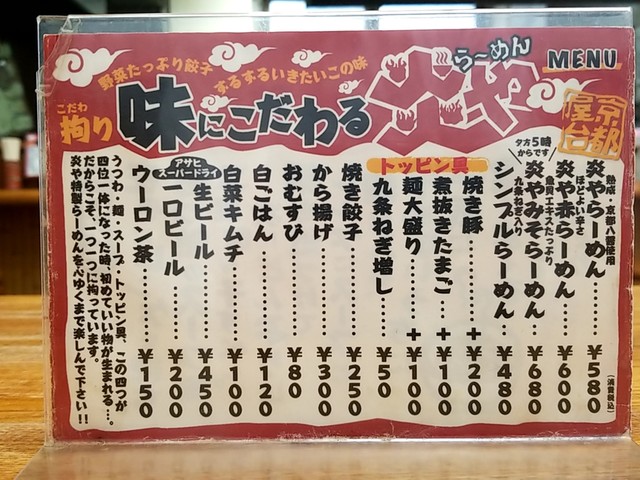 野菜たっぷり餃子
するするいきたいこの味
こだわ
拘り
味にこだわる
ら〜めん
炎や
MENU
京都
屋台
熟成・京都八醤使用
炎やらーめん………¥580
(消費税込)
ほどよい辛さ
炎や赤らーめん……¥600
夕方5時からです
魚貝エキスたっぷり
炎やみそらーめん…¥680
九条ねぎ入り
シンプルらーめん…¥480
トッピン具
焼き豚………+¥200
煮抜きたまご…+¥100
麺大盛り………+¥100
九条ねぎ増し……¥50
焼き餃子…………¥250
から揚げ…………¥300
おむすび…………¥80
白ごはん…………¥120
白菜キムチ………¥100
アサヒ
スーパードライ
生ビール…………¥450
一口ビール………¥200
ウーロン茶………¥150
うつわ・麺・スープ・トッピン具、この四つが
四位一体になった時、初めていい物が生まれる…。
だからこそ、一つ一つに拘っています。
炎や特製らーめんを心ゆくまで楽しんで下さい!!